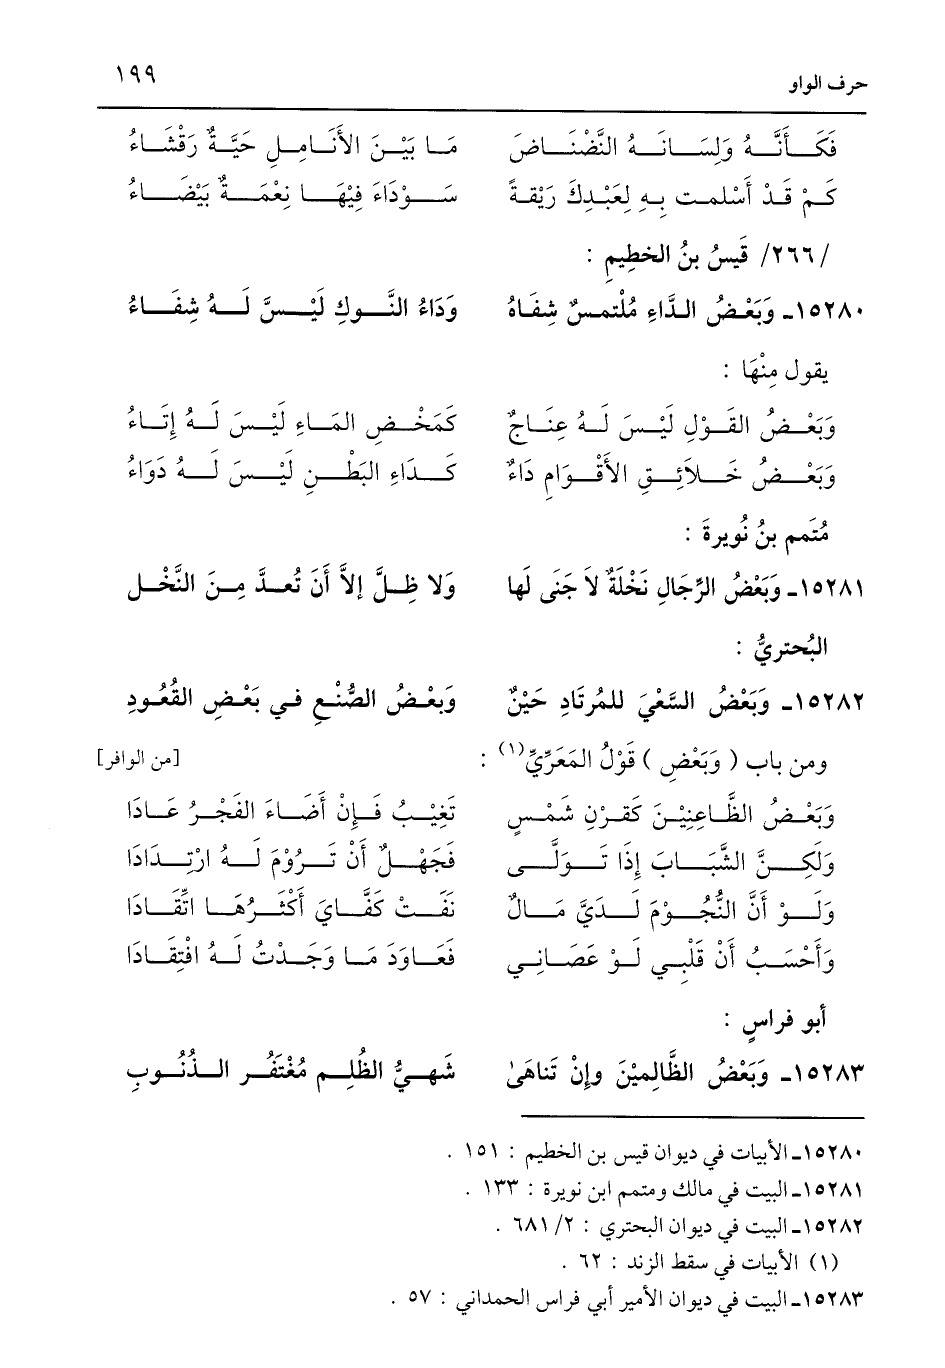 حرف الواو ١٩٩
فَكَأَنَّهُ وَلِسَانَهُ النَّضْنَاضَ مَا بَيْنَ الأَنَامِلِ حَيَّةٌ رَقْشَاءُ
كَمْ قَدْ أَسْلمت بِهِ لِعَبْدِكَ رَيْقَةً سَوْدَاءَ فِيْهَا نِعْمَةٌ بَيْضَاءُ
/٢٦٦/ قَيسُ بنُ الخطِيمِ :
١٥٢٨٠ـ وَبَعْضُ الدَّاءِ مُلْتمسٌ شِفَاهُ وَدَاءُ النَّوكِ لَيْسَ لَهُ شِفَاءُ
يقول مِنْهَا :
وَبَعْضُ القَوْلِ لَيْسَ لَهُ عِنَاجٌ كَمَخْضِ المَاءِ لَيْسَ لَهُ إِتَاءُ
وَبَعْضُ خَلائِقِ الأَقْوَامِ دَاءٌ كَدَاءِ البَطْنِ لَيْسَ لَهُ دَوَاءُ
مُتَمم بنُ نُويرةَ :
١٥٢٨١ـ وَبَعْضُ الرِّجَالِ نَخْلَةٌ لاَ جَنَى لَها وَلا ظِلَّ إلاَّ أَنَ تُعدَّ مِنَ النَّخْل
البُحتريُّ :
١٥٢٨٢ـ وَبَعْضُ السَّعْيَ للمُرتَادِ حَيْنٌ وَبعْضُ الصُّنْعِ في بَعْضِ القُعُودِ
ومن باب ( وَبَعْضِ ) قَوْلُ المَعَرِّيِّ(١) : [من الوافر]
وَبَعْضُ الظَّاعِنِيْنَ كَقرْنِ شَمْسٍ تَغِيْبُ فَإِنْ أَضَاءَ الفَجْرُ عَادَا
وَلَكِنَّ الشَّبَابَ إِذَا تَوَلَّى فَجَهْلٌ أَنْ تَرُوْمَ لَهُ ارْتِدَادَا
وَلَوْ أَنَّ النُّجُوْمَ لَدَيَّ مَالٌ نَفَتْ كَفَّايَ أَكْثَرُهَا اتِّقَادَا
وَأَحْسَبُ أَنْ قَلْبِي لَوْ عَصَانِي فَعَاوَدَ مَا وَجَدْتُ لَهُ افْتِقَادَا
أبو فراسٍ :
١٥٢٨٣ـ وَبَعْضُ الظَّالِمِيْنَ وإنْ تَناهَىٰ شَهيُّ الظُلِم مُغْتَفُر الذُنُوبِ
١٥٢٨٠ـ الأبيات في ديوان قيس بن الخطيم : ١٥١ .
١٥٢٨١ـ البيت في مالك ومتمم ابن نويرة : ١٣٣ .
١٥٢٨٢ـ البيت في ديوان البحتري : ٢/ ٦٨١ .
(١) الأبيات في سقط الزند : ٦٢ .
١٥٢٨٣ـ البيت في ديوان الأمير أبي فراس الحمداني : ٥٧ .